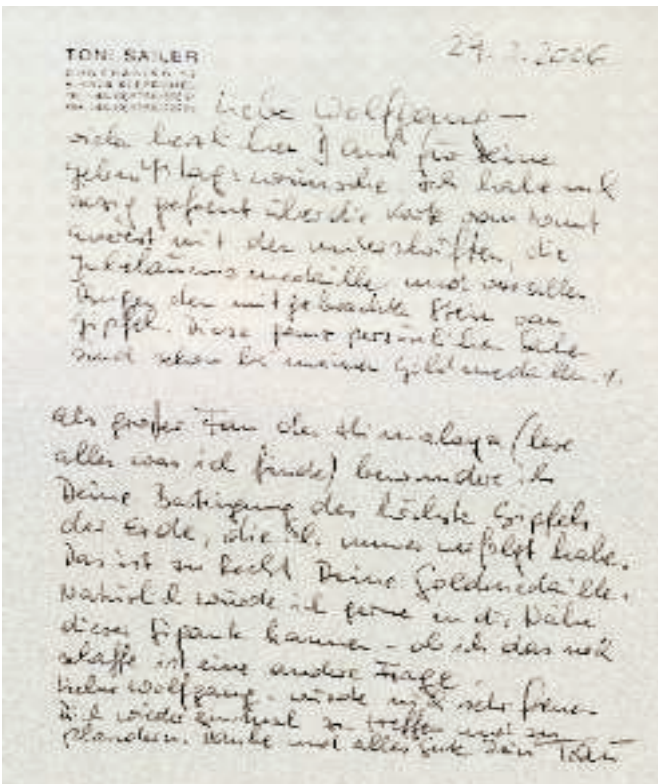 TONI SAILER
29. 2. 2006
Liebe Wolfgang –
viele herzlichen Dank für Deine
Geburtstagswünsche. Ich habe mich
gefreut über die Karte vom Mount
Everest mit den Unterschriften, die
Jubiläumsmedaille und vor allem
den mitgebrachte Stein vom
Gipfel. Diese ganz persönlichen
sind schon bei meinen Goldmedaillen.
als großer Fan des Himalaya (lese
alles was ich finde) bewundere ich
Deine Besteigung des höchsten Gipfels
der Erde, die ich immer verfolgt habe.
Das ist zu Recht Deine Goldmedaille.
Natürlich würde ich gerne in die Nähe
dieser Gigante kommen – ob ich das noch
schaffe ist eine andere Frage
Lieber Wolfgang – würde mich sehr freuen
Dich wieder einmal zu treffen und zu
plaudern. Danke und alles Gute Dein Toni